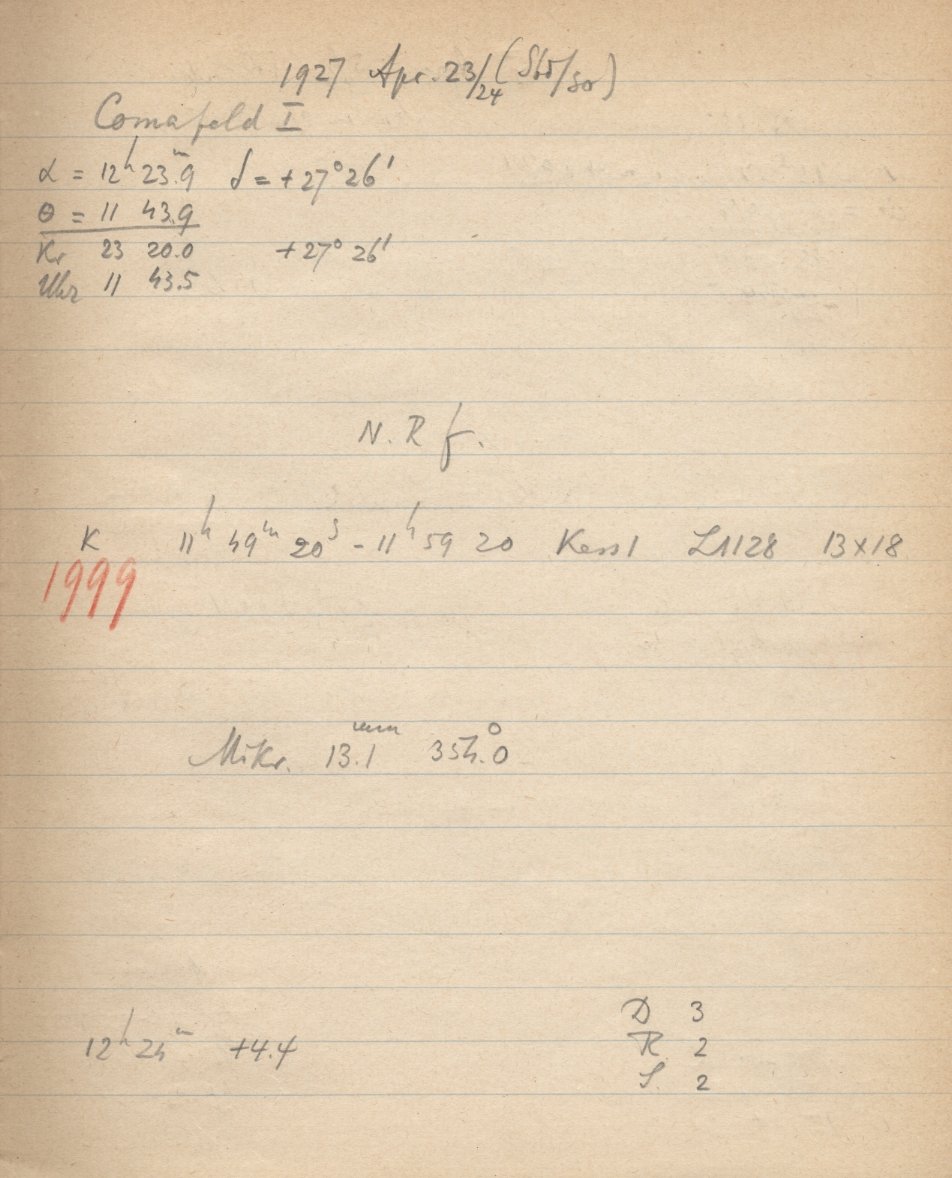 1927 Apr. 23/24 (Sbd/So)
Comafeld I
α = 12h 23.m9 δ = +27° 26'
θ = 11 43.9
Kr 23 20.0 +27° 26'
Uhr 11 43.5
N. R f.
K 11h 49m 20s - 11h 59 20 Kass 1 L1128 13x18
1999
Mikr. 13.1mm 354.°0
12h 24m +4.4
D 3
R 2
S. 2